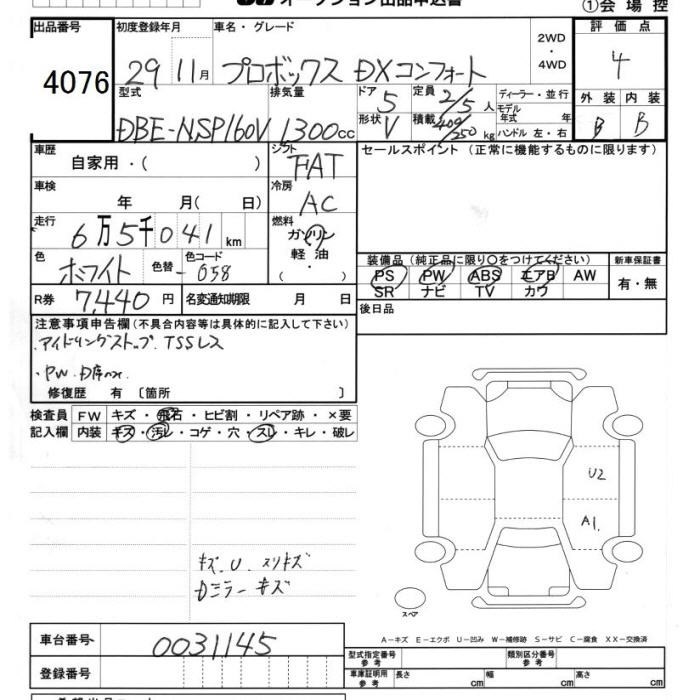 オークション出品申込書 ①会場控
出品番号 初度登録年月 車名・グレード 2WD ・ 4WD 評価点
4076 29 11月 プロボックス DXコンフォート 4
型式 排気量 ドア 5 定員 2/5人 ディーラー・並行 外装 内装
DBE-NSP160V 1300cc 形状 V 積載 400/250kg モデル年式 年 ハンドル 左・右 B B
車歴 自家用・( ) シフト FAT セールスポイント(正常に機能するものに限ります)
車検 年 月( 日) 冷房 AC
走行 6万5千041km 燃料 ガソリン
色 ホワイト 色替 - 色コード 058 軽油 ( ・ ) 装備品(純正品に限り○をつけてください) 新車保証書
PS PW ABS エアB AW 有・無
SR ナビ TV カワ
R券 7,440円 名変通知期限 月 日 後日品
注意事項申告欄(不具合内容等は具体的に記入して下さい)
・アイドリングストップ、TSSレス
・PW、D席のみ
修復歴 有〔箇所 〕
検査員 FW キズ・飛石・ヒビ割・リペア跡・×要
記入欄 内装 キズ・汚レ・コゲ・穴・スレ・キレ・破レ
U2
A1
キズ、U、スリキズ
Dミラーキズ
スペア
A－キズ E－エクボ U－凹み W－補修跡 S－サビ C－腐食 XX－交換済
車台番号 0031145
型式指定番号 参考 類別区分番号 参考
登録番号 車庫証明用 参考 長さ cm 幅 cm 高さ cm